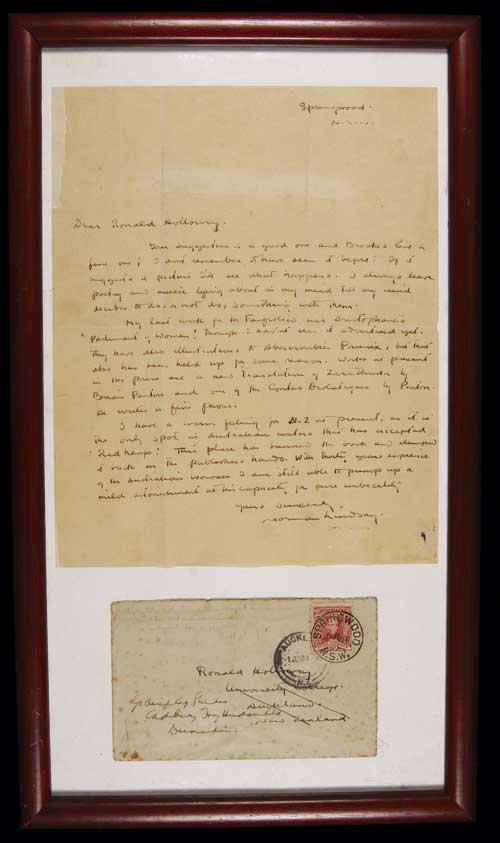 Springwood.
N.S.W.
Dear Ronald Holloway.
Your suggestion is a good one and Brooke's line a
fine one; I don't remember to have seen it before! If it
suggests a picture I'll see what happens. I always leave
poetry and music lying about in my mind till my mind
decides to do, or not do, something with them.
My last work for the Fanfrolico was Aristophanes
'Parliament of Women', though I hav'nt seen it advertised yet.
They have also illustrations to Abercrombie's Phoenix, but that
also has been held up for some reason. Works at present
in the Press are a new translation of by
Brian Penton and one of the Contes Drolatiques by Penton.
He writes a fine prose.
I have a warm feeling for N.Z at present, as it is
the only spot in Australian waters that has accepted
'Redheap'. This place has banned the work and dumped
it back on the publishers hands. With thirty years experience
of the Australian wowser I am still able to pump up a
mild astonishment at his capacity for pure imbecility
Yours sincerely,
Norman Lindsay.
AUCKL
N.Z.
SPRINGWOOD
N.S.W.
Ronald Holloway
University College.
Auckland.
New Zealand.
Cadbury Fry Hudson Ltd
Dunedin.